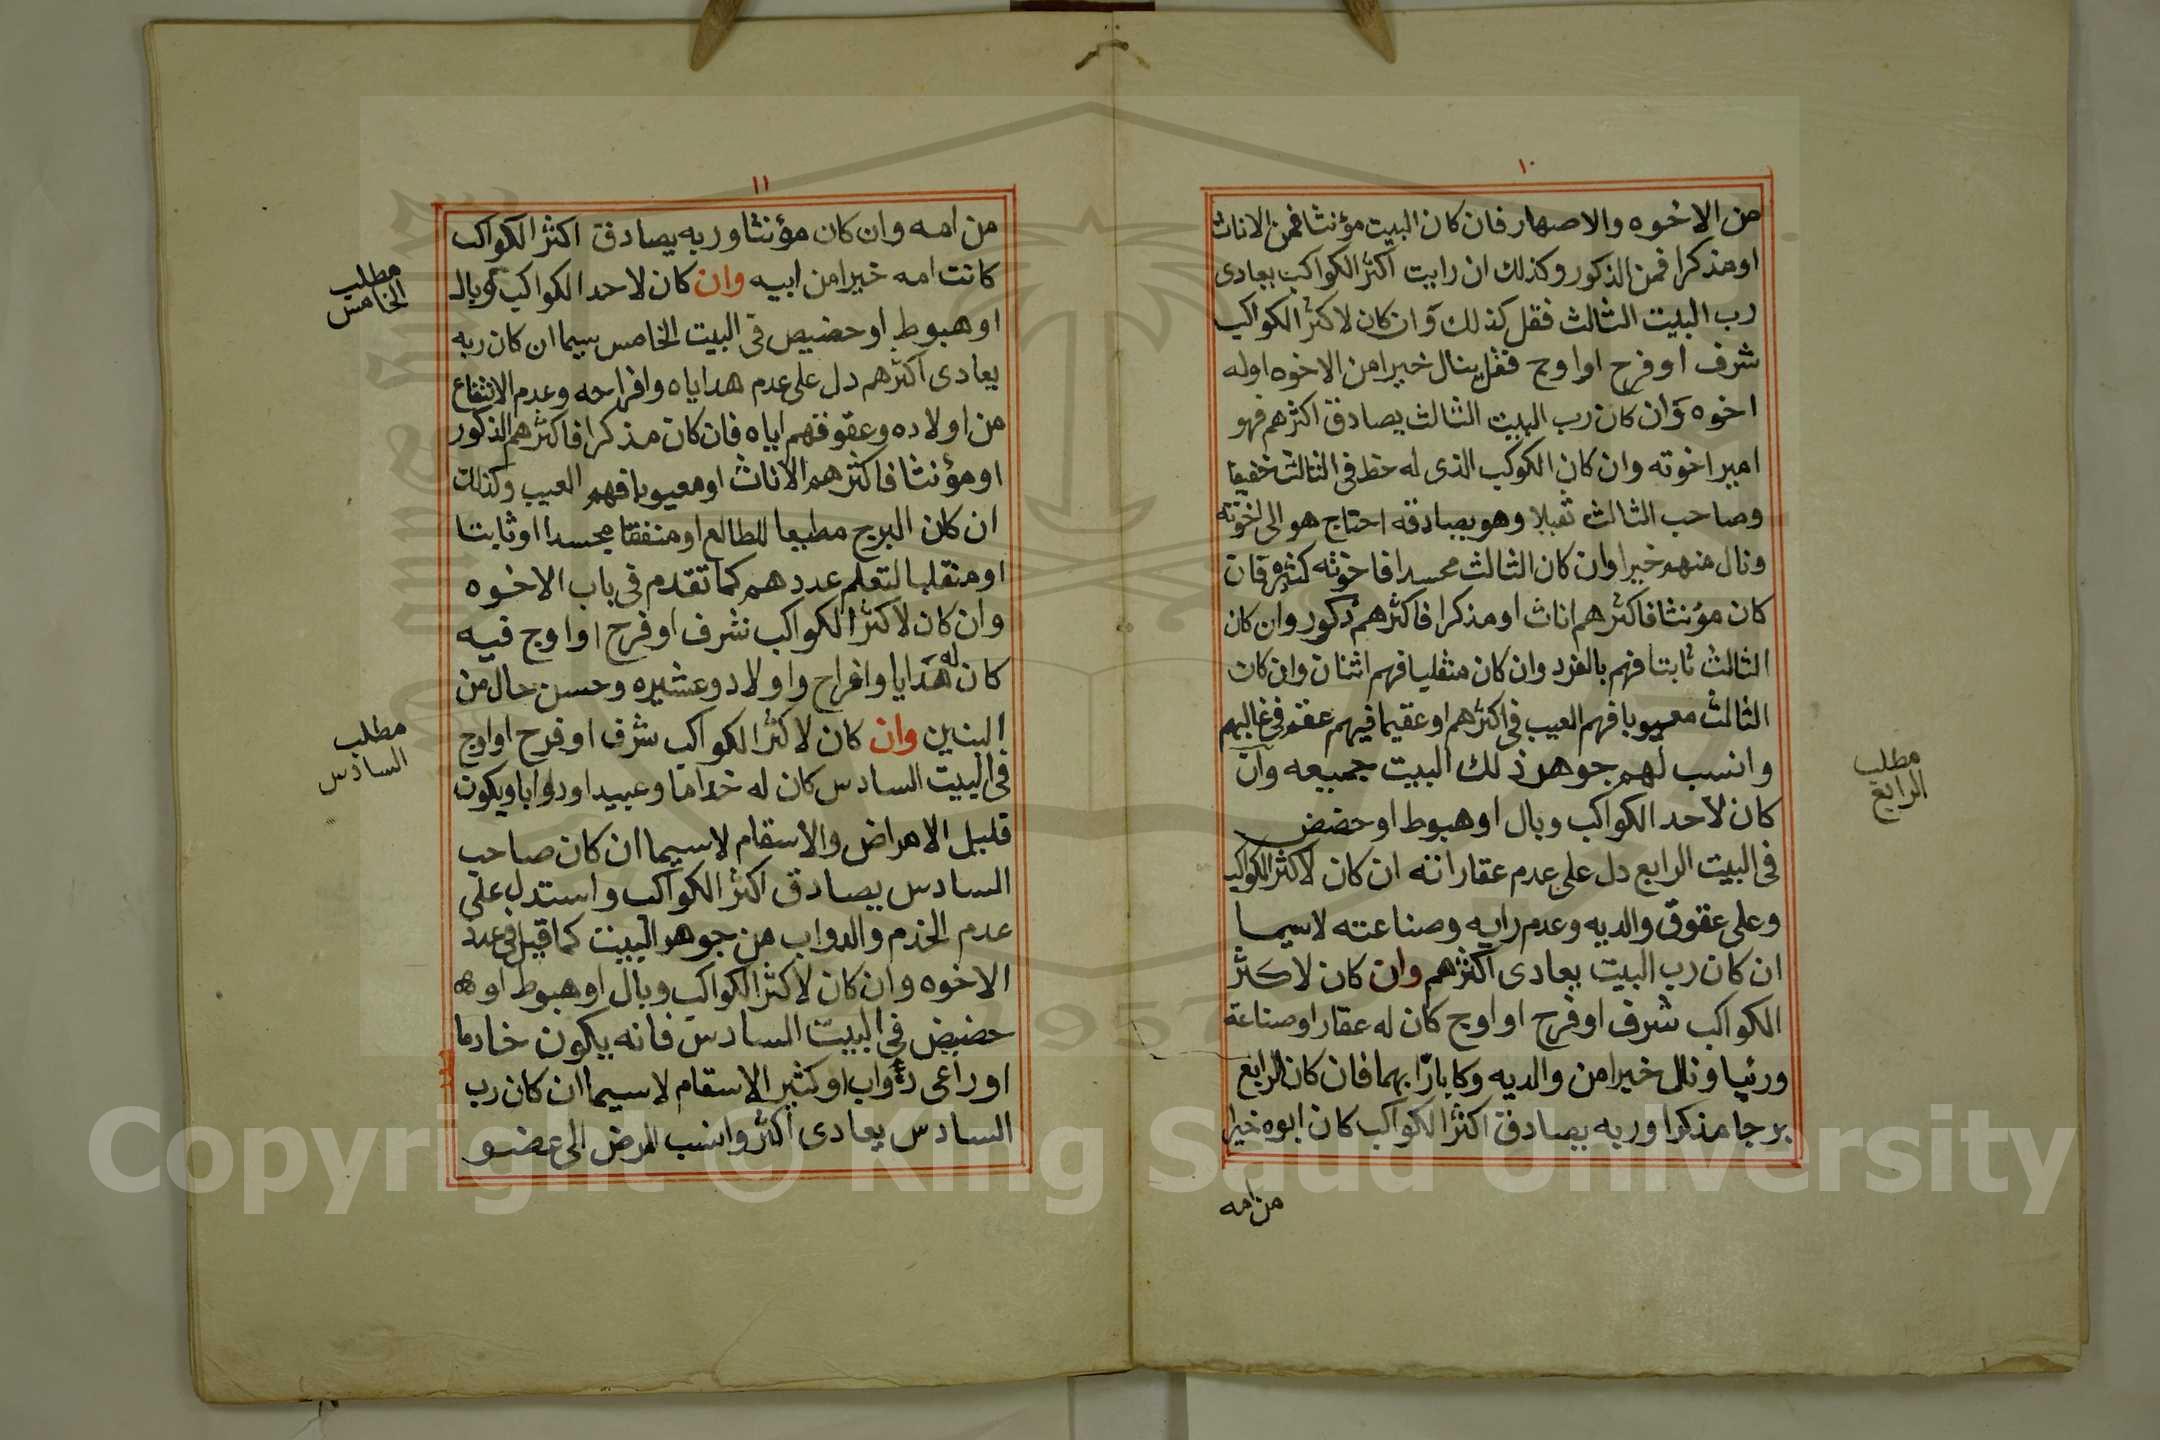 ١٠
من الاخوه والاصهار فان كان البيت مؤنثا فمن الاناث
او مذكرا فمن الذكور وكذلك ان رايت اكثر الكواكب يعادى
رب البيت الثالث فقل كذلك وان كان لاكثر الكواكب
شرف او فرح او اوج فقل ينال خيرا من الاخوه او له
اخوه وان كان رب البيت الثالث يصادق اكثرهم فهو
امير اخوته وان كان الكوكب الذى له حظ فى الثالث خفيفا
وصاحب الثالث ثقيلا وهو يصادقه احتاج هو الى اخوته
ونال منهم خيرا وان كان الثالث مجسدا فاخوته كثيره فان
كان مؤنثا فاكثرهم اناث او مذكرا فاكثرهم ذكور وان كان
الثالث ثابتا فهم بالفرد وان كان منقلبا فهم اثنان وان كان
الثالث معيوبا فهم العيب فى اكثرهم او عقيما فيهم عقم فى غالبهم
وانسب لهم جوهر ذلك البيت جميعه وان
كان لاحد الكواكب وبال او هبوط او حضض
فى البيت الرابع دل على عدم عقاراته ان كان لاكثر الكواكب
وعلى عقوق والديه وعدم رايه وصناعته لاسيما
ان كان رب البيت يعادى اكثرهم وان كان لاكثر
الكواكب شرف او فرح او اوج كان له عقار او صناعة
ورئيا ونال خيرا من والديه وكا بارّا بهما فان كان الرابع
برجا مذكرا وربه يصادق اكثر الكواكب كان ابوه خيرا
من امه
مطلب
الرابع
١١
من امه وان كان مؤنثا وربه يصادق اكثر الكواكب
كانت امه خيرا من ابيه وان كان لاحد الكواكب وبال
او هبوط او حضيض فى البيت الخامس سيما ان كان ربه
يعادى اكثرهم دل على عدم هداياه وافراحه وعدم الانتفاع
من اولاده وعقوقهم اياه فان كان مذكرا فاكثرهم الذكور
او مؤنثا فاكثرهم الاناث او معيوبا فهم العيب وكذلك
ان كان البرج مطيعا للطالع او متفقا مجسدا او ثابتا
او منقلبا لتعلم عددهم كما تقدم فى باب الاخوه
وان كان لاكثر الكواكب شرف او فرح او اوج فيه
كان له هدايا وافراح واولاد وعشيره وحسن حال من
البنين وان كان لاكثر الكواكب شرف او فرح او اوج
فى البيت السادس كان له خداما وعبيد او دوابا ويكون
قليل الامراض والاسقام لاسيما ان كان صاحب
السادس يصادق اكثر الكواكب واستدل على
عدم الخدم والدواب من جوهر البيت كما قيل فى عدد
الاخوه وان كان لاكثر الكواكب وبال او هبوط او
حضيض فى البيت السادس فانه يكون خادما
او راعى دواب او كثير الاسقام لاسيما ان كان رب
السادس يعادى اكثر وانسب المرض الى عضو
مطلب
الخامس
مطلب
السادس
1957
Copyright © King Saud University